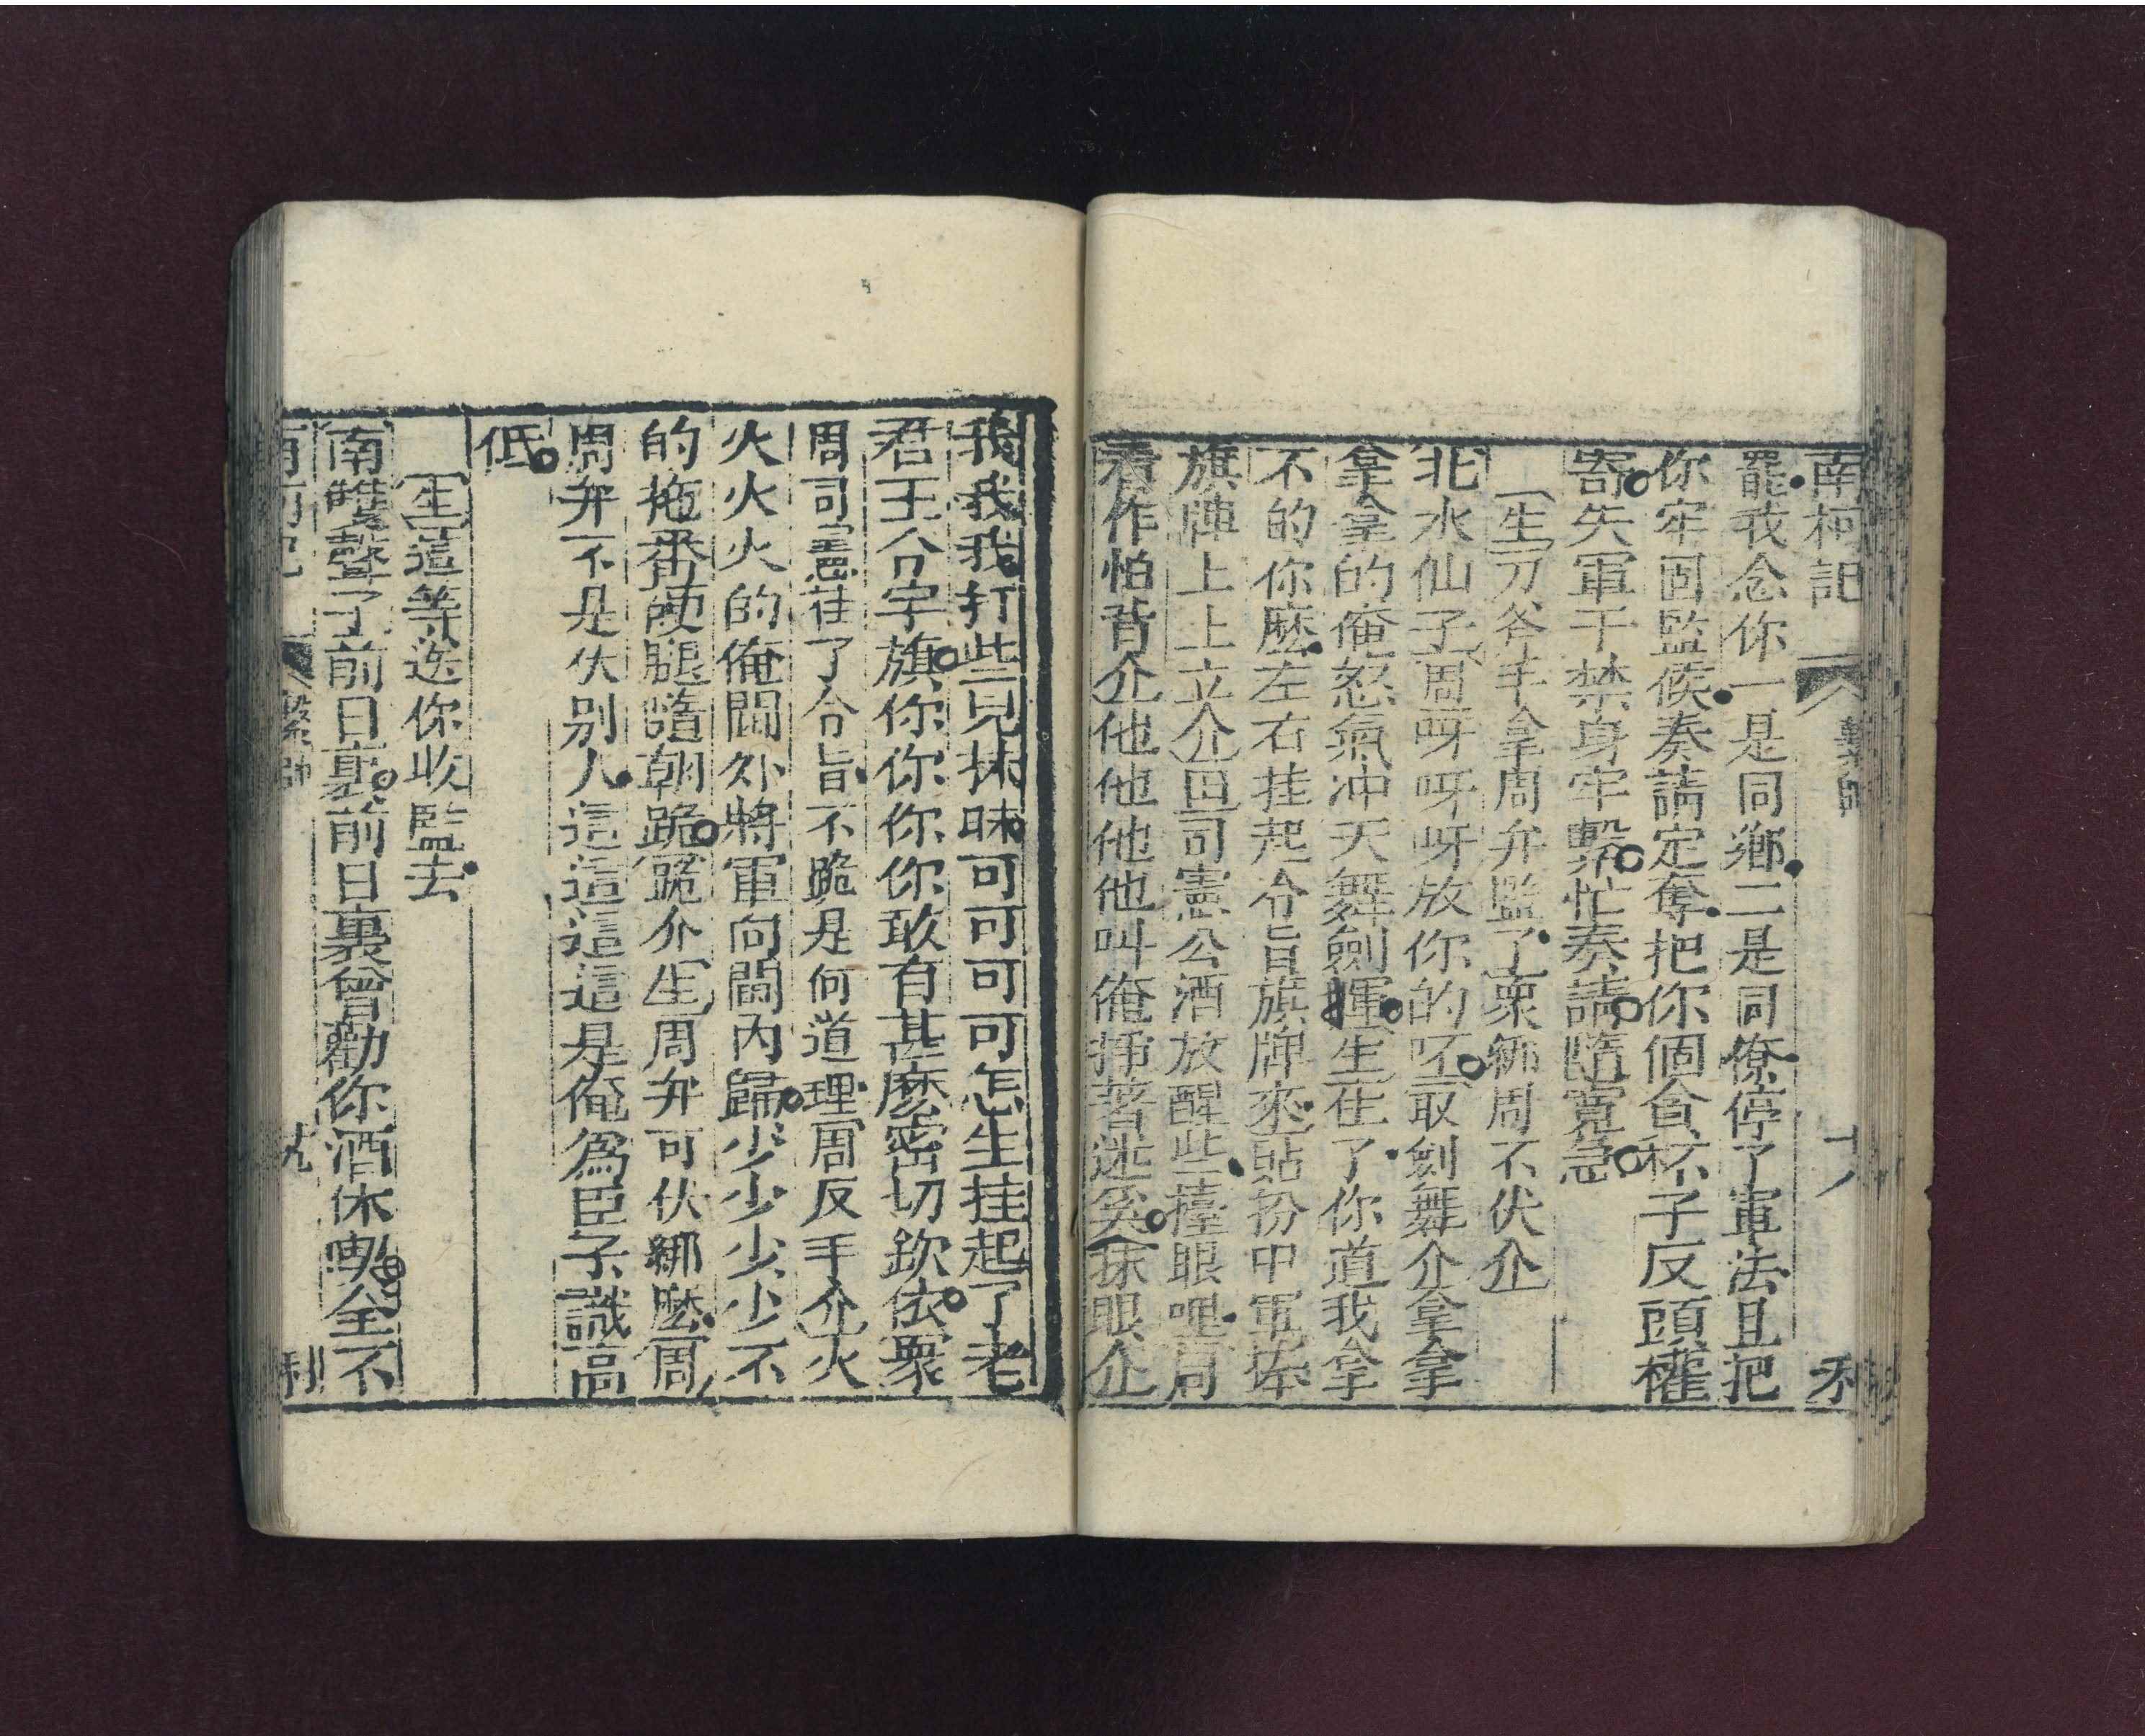 南柯記 繫帥 十八 利
罷我念你一是同鄉二是同僚停了軍法且把
你牢固監候奏請定奪把你個貪杯子反頭權
寄失軍干禁身牢繫忙奏請隨寬急
生刀斧手拿周弁監了衆綁周不伏介
北水仙子周呀呀呀放你的呸取劍舞介拿拿
拿拿的俺怒氣冲天舞劍揮生住了你道我拿
不的你麽左右挂起令旨旗牌來貼扮中軍捧
旗陣上上立介田司憲公酒放醒些擡眼哩周
看作怕背介他他他他叫俺揷著迷奚抹眼介
我我我打些兒抹昧可可可可怎生挂起了老
君王令字旗你你你你敢有甚麽密切欽依衆
周司憲在了令旨不跪是何道理周反手介火
火火火的俺閫外將軍向閫內歸少少少少不
的拖番硬腿睛朝跪跪介生周弁可伏綁麽周
周弁不是伏别人這這這這是俺爲臣子識高
低
生這等送你收監去
南雙聲子前日裏前日裏曾勸你酒休喫全不
南柯記 繫帥 十九 利